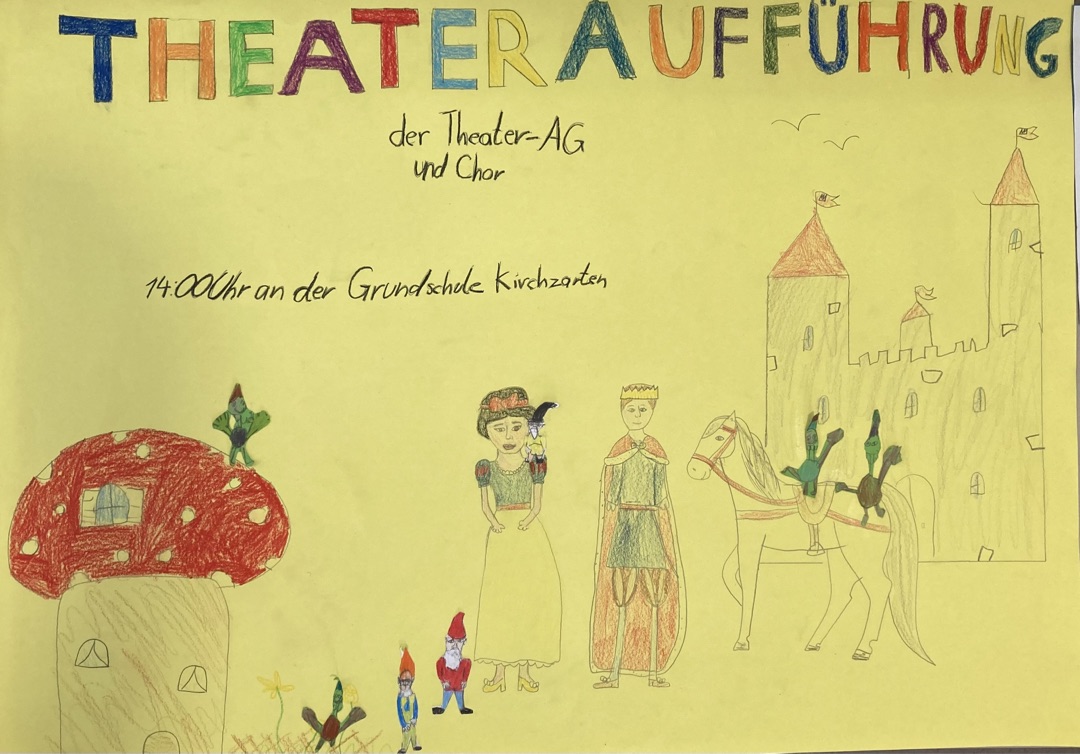 THEATERAUFFÜHRUNG
der Theater-AG
und Chor
14:00Uhr an der Grundschule Kirchzarten